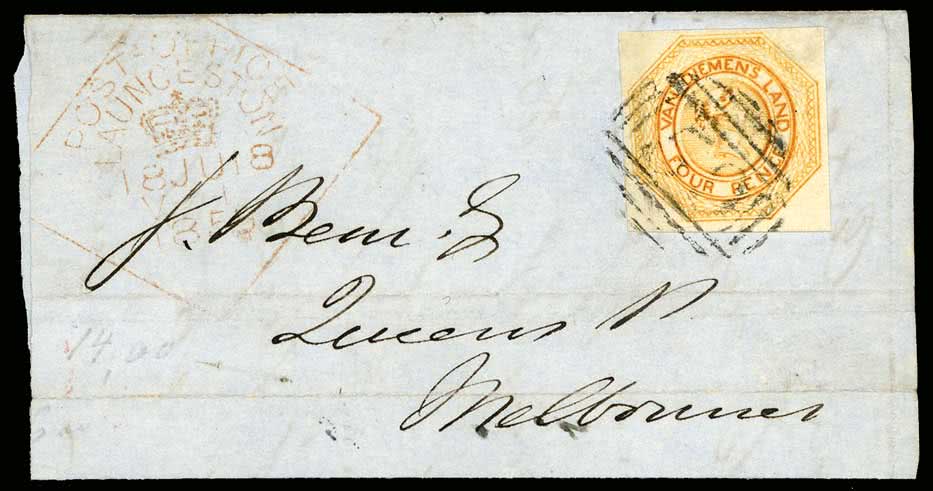 POST OFFICE
LAUNCESTON
18 JU 18
VAN DIEMEN'S LAND
FOUR PENCE
J. Bem. Esq
Queens St
Melbourne
14.00